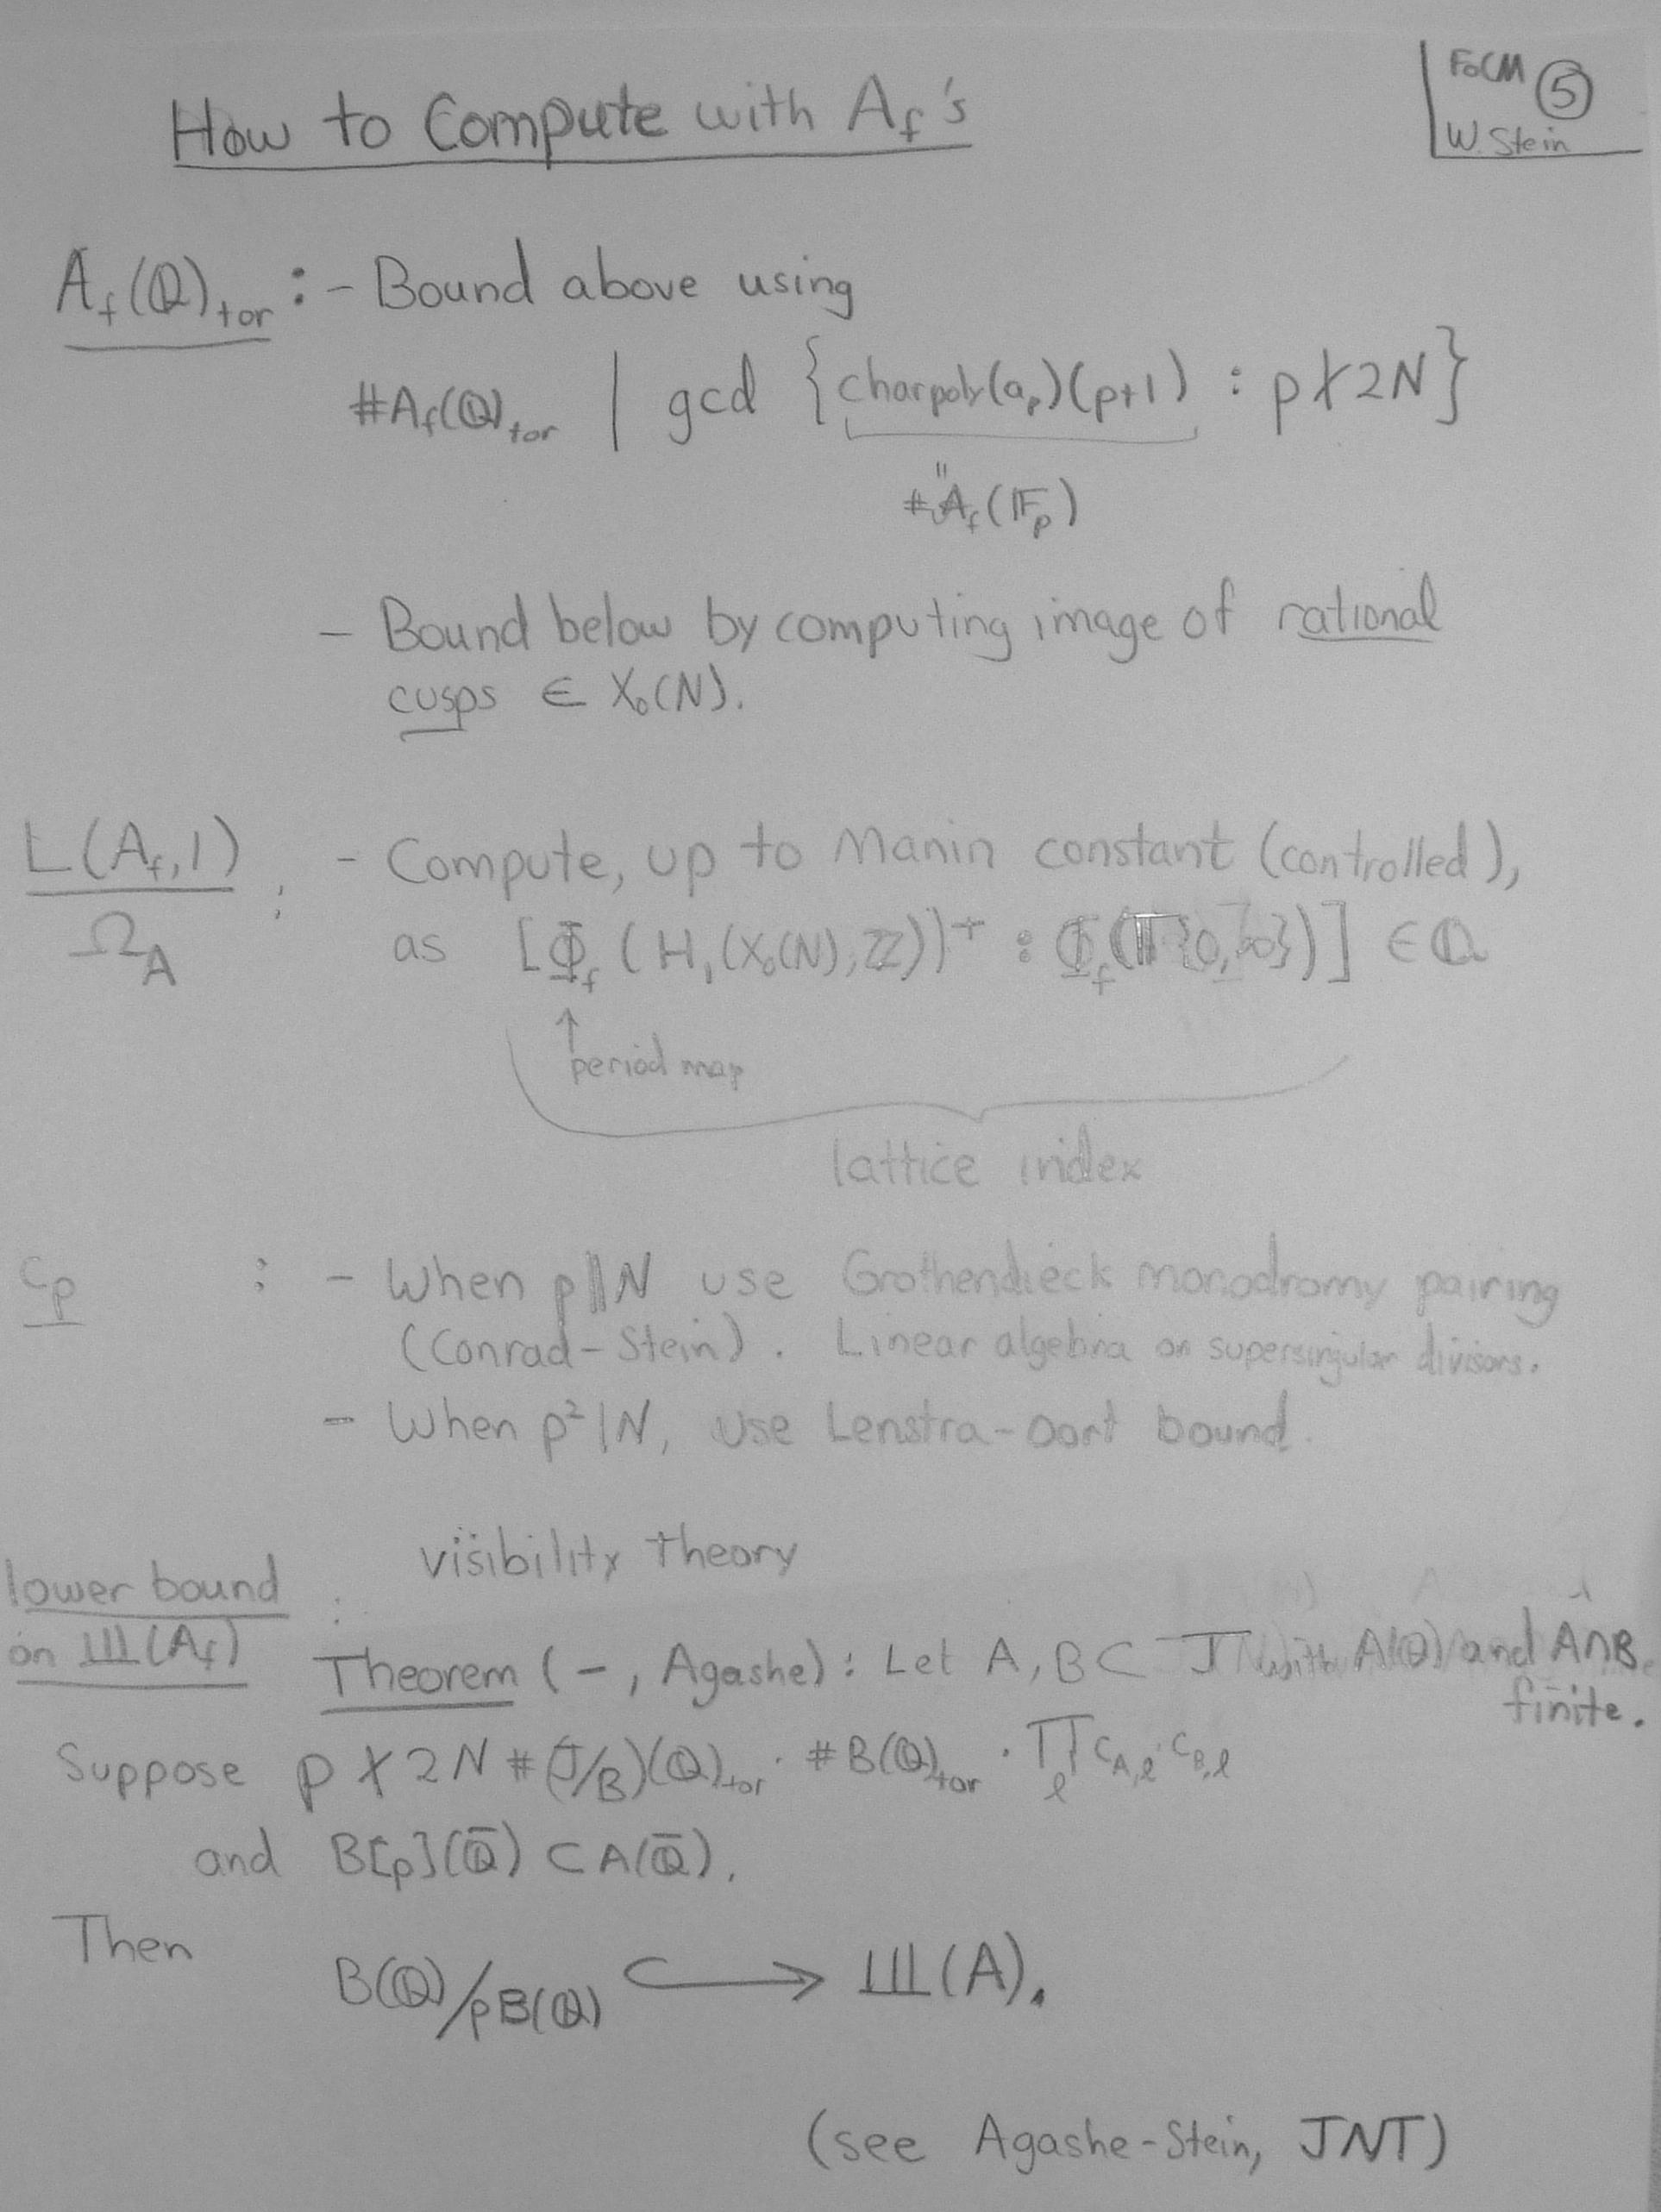 How to Compute with A_f's
FoCM ⑤
W. Stein
A_f(ℚ)_tor : - Bound above using
#A_f(ℚ)_tor | gcd {charpoly(a_p)(p+1) : p∤2N}
"
#A_f(𝔽_p)
- Bound below by computing image of rational
cusps ∈ X₀(N).
L(A_f,1)
Ω_A
: - Compute, up to Manin constant (controlled),
as [Φ_f(H₁(X₀(N),ℤ))⁺ : Φ_f(𝕋{0,∞})] ∈ ℚ
↑
period map
lattice index
c_p : - When p‖N use Grothendieck monodromy pairing
(Conrad-Stein). Linear algebra on supersingular divisors.
- When p²|N, use Lenstra-Oort bound.
lower bound
on Ш(A_f)
: visibility theory
Theorem (-, Agashe): Let A, B ⊂ J with A(ℚ) and A∩B
finite.
Suppose p ∤ 2N #(J/B)(ℚ)_tor · #B(ℚ)_tor · ∏_ℓ c_{A,ℓ} · c_{B,ℓ}
and B[p](ℚ̄) ⊂ A(ℚ̄).
Then
B(ℚ)/pB(ℚ) ↪ Ш(A).
(see Agashe-Stein, JNT)